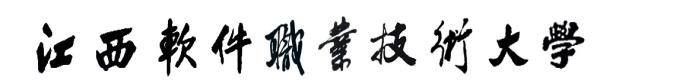 江西軟件職業技術大學